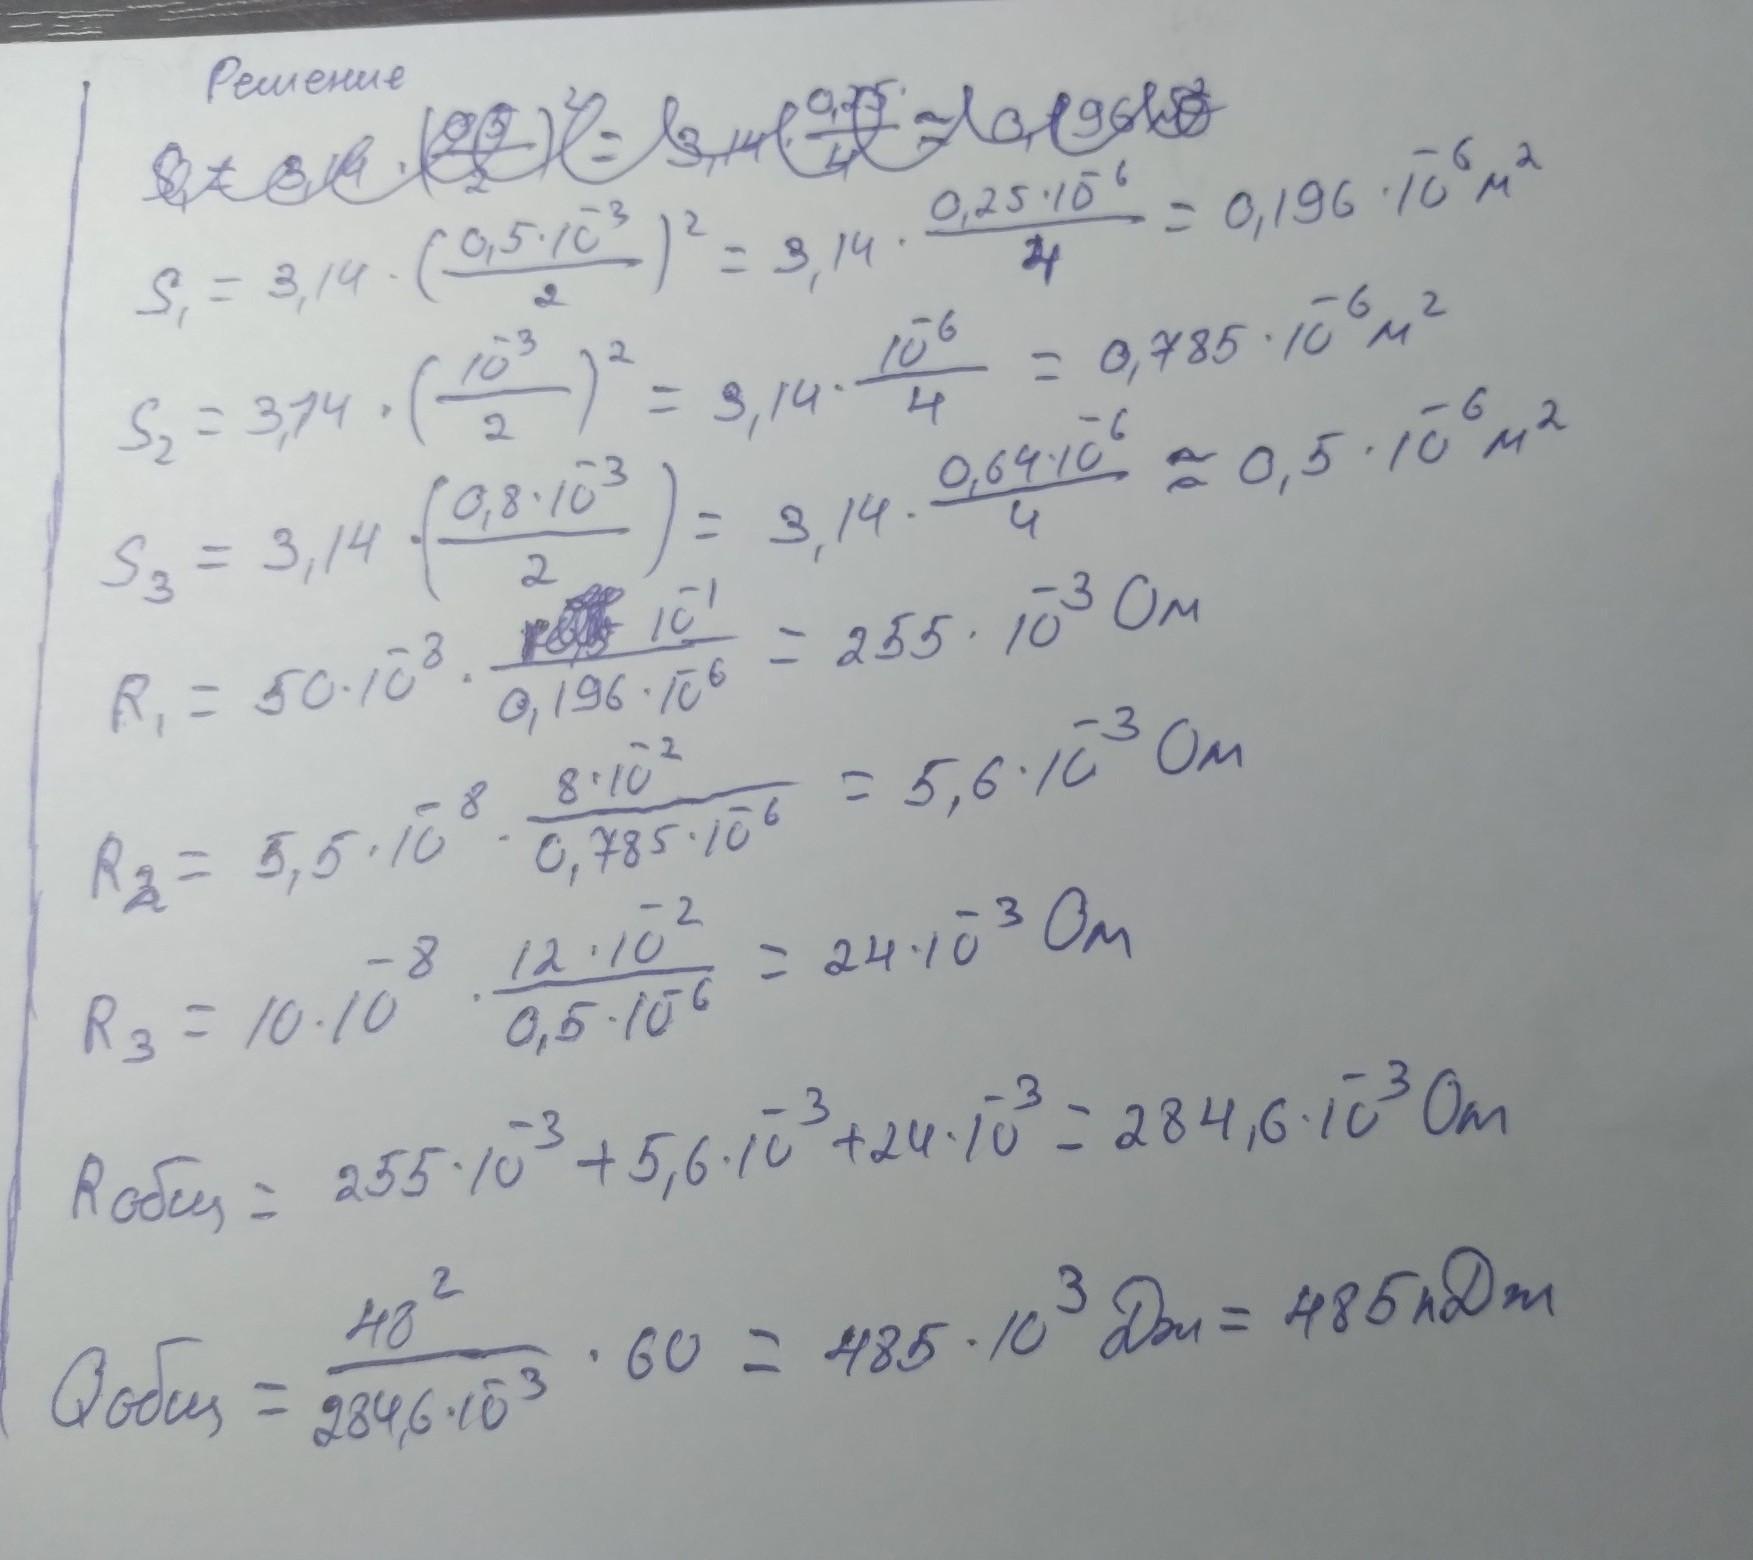 Решение
S₁ = 3,14 · (0,5·10⁻³/2)² = 3,14 · 0,25·10⁻⁶/4 = 0,196 · 10⁻⁶ м²
S₂ = 3,14 · (10⁻³/2)² = 3,14 · 10⁻⁶/4 = 0,785 · 10⁻⁶ м²
S₃ = 3,14 · (0,8·10⁻³/2) = 3,14 · 0,64·10⁻⁶/4 ≈ 0,5 · 10⁻⁶ м²
R₁ = 50·10⁻⁸ · 10⁻¹/0,196·10⁻⁶ = 255 · 10⁻³ Ом
R₂ = 5,5·10⁻⁸ · 8·10⁻²/0,785·10⁻⁶ = 5,6·10⁻³ Ом
R₃ = 10·10⁻⁸ · 12·10⁻²/0,5·10⁻⁶ = 24·10⁻³ Ом
Rобщ = 255·10⁻³ + 5,6·10⁻³ + 24·10⁻³ = 284,6·10⁻³ Ом
Qобщ = 48²/284,6·10⁻³ · 60 = 485·10³ Дж = 485кДж